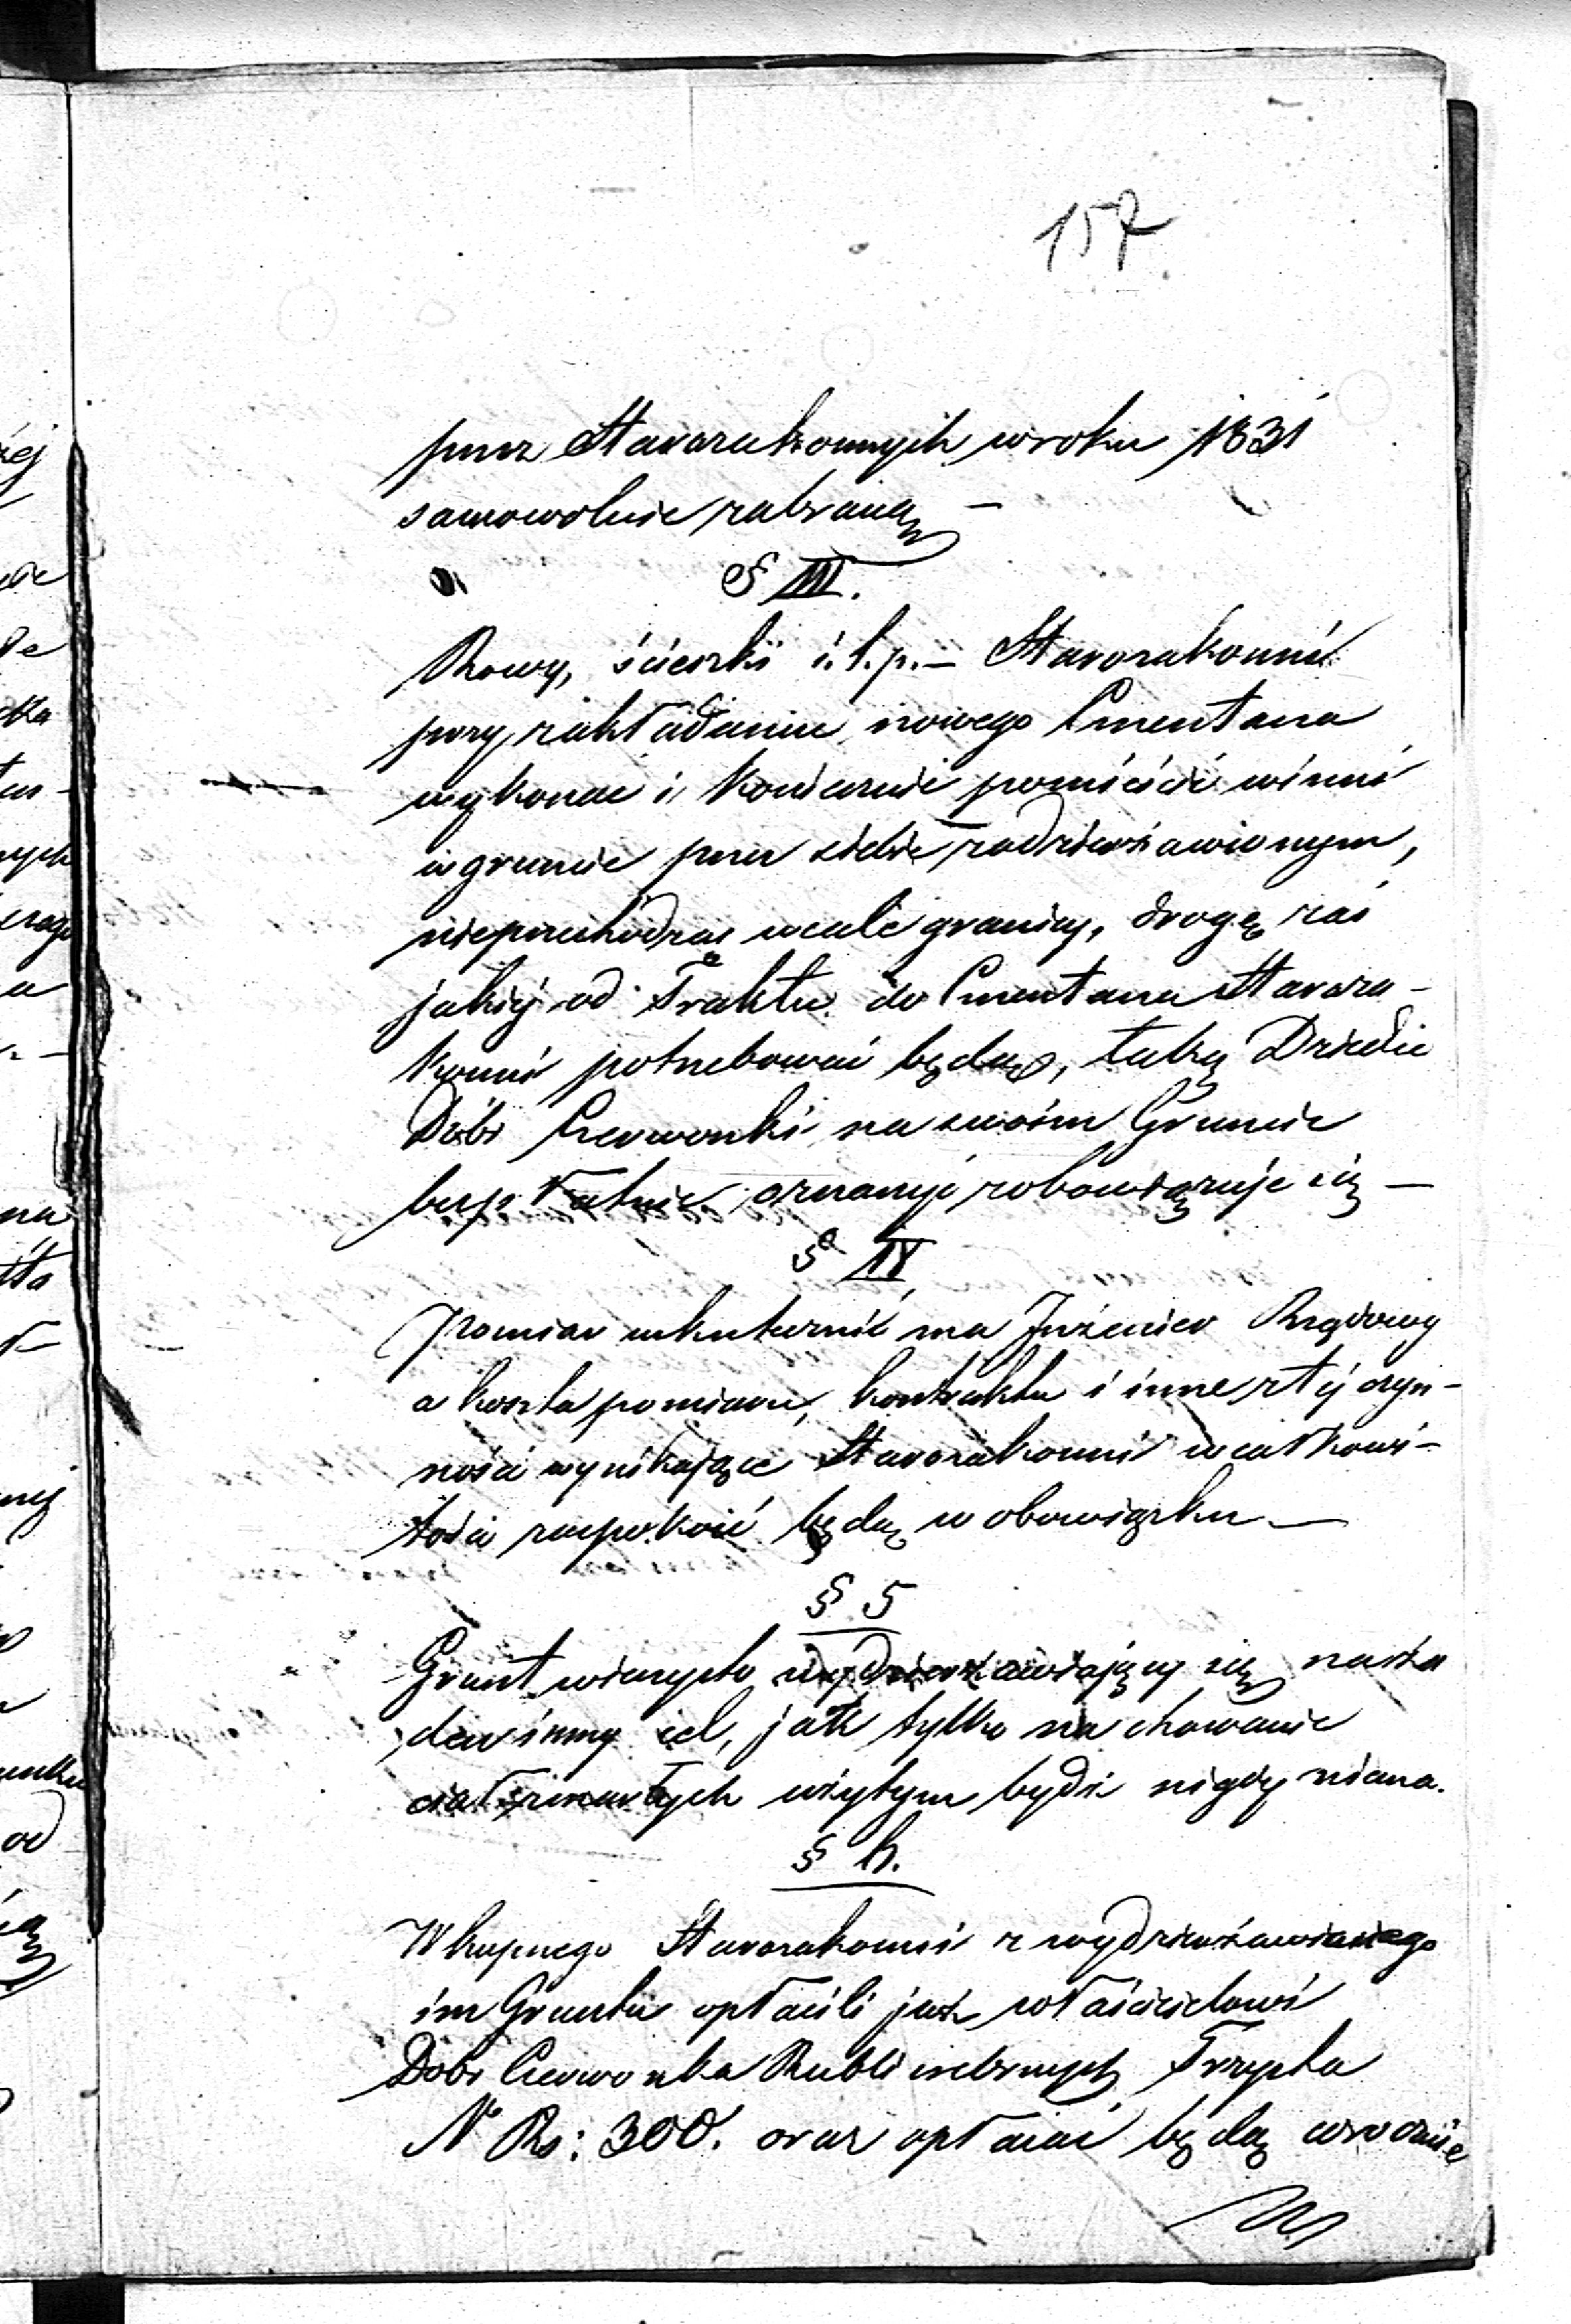 157
przez Starozakonnych w roku 1831
samowolnie zabraną —
§ III.
Rowy, ścieszki i. t. p. — Starozakonni
przy zakładaniu nowego Cmentarza
wykonać i koniecznie pomieścić winni
w gruncie przez siebie zadzierżawionym,
nieprzechodząc wcale granicy, drogę zaś
jakiej od Traktu do Cmentarza Staroza-
konni potrzebować będą, taką Dziedzic
Dóbr Czerwonki na swoim Gruncie
bezpłatnie oznaczyć zobowiązuje się —
§ IV
Pomiar uskutecznić ma Jnżenier Rządowy
a koszta pomiaru, kontraktu i inne z tej czyn-
ności wynikające Starozakonni w całkowi-
tości zaspokoić będą w obowiązku —
§ 5
Grunt wieczysto wydzierżawiający się na ża
den inny cel, jak tylko na chowanie
ciał zmarłych użytym bydź nigdy niema.
§ 6.
Wkupnego Starozakonni z wydzierżawianego
im Gruntu opłacili już właścicielowi
Dóbr Czerwonka Rubli srebrnych Trzysta
N Rs: 300. oraz opłacać będą corocznie